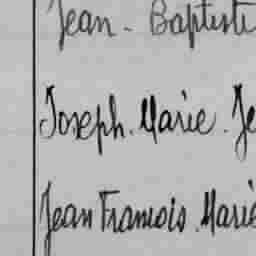 Jean - Baptiste
Joseph. Marie. Je
Jean Francois. Marie